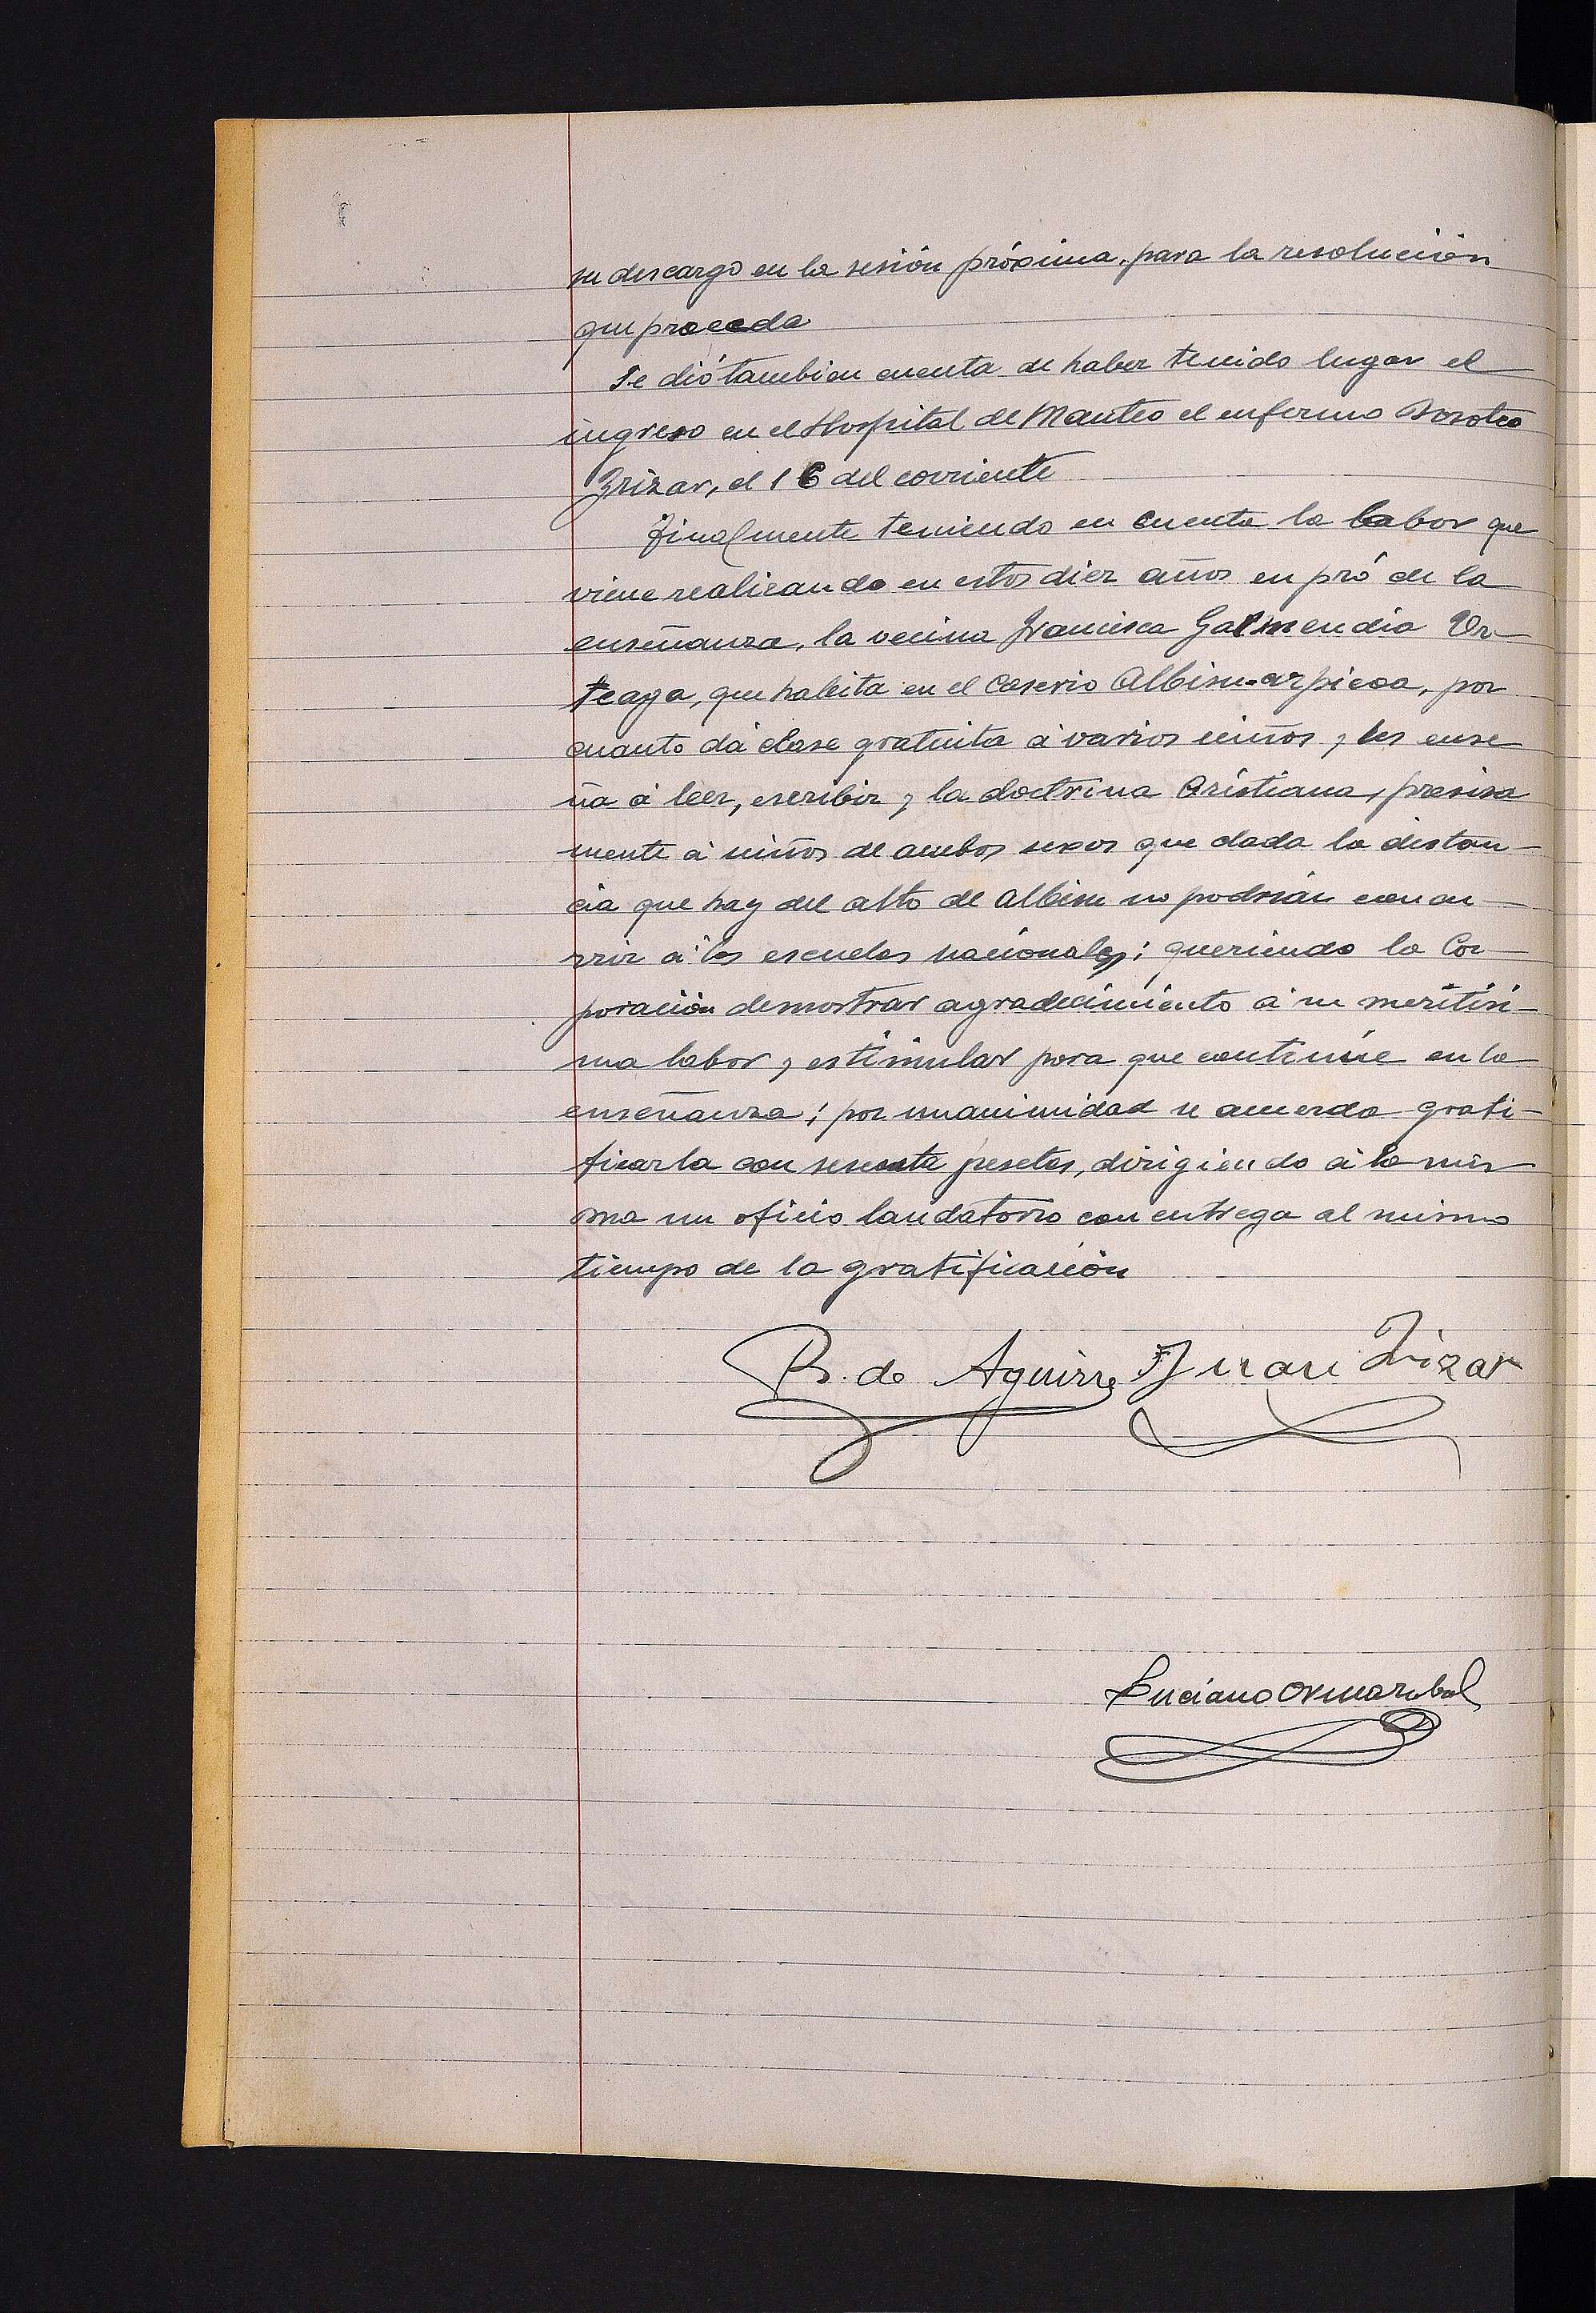 su descargo en la sesión próxima, para la resolución
que proceda
Se dió tambien cuenta de haber tenido lugar el
ingreso en el Hospital de Manteo el enfermo Doroteo
Irizar, el 16 del corriente
Finalmente teniendo en cuenta la labor que
viene realizando en estos diez años en pró de la
enseñanza, la vecina Francisca Galmendia Ur-
teaga, que habita en el Caserio Albisu-azpicoa, por
cuanto dá clase gratuita á varios niños y les ense
ña á leer, escribir y la doctrina Cristiana, precisa
mente á niños de ambos sexos que dada la distan-
cia que hay del alto de Albisu no podrián concu-
rrir á las escuelas nacionales; queriendo la Cor-
poración demostrar agradecimiento á su meritisi-
ma labor y estimular para que continúe en la
enseñanza; por unanimidad se acuerda grati-
ficarla con sesenta pesetas, dirigiendo á la mis-
ma un oficio laudatorio con entrega al mismo
tiempo de la gratificación
B. de Aguirre Juan Irizar
Luciano Ormazabal